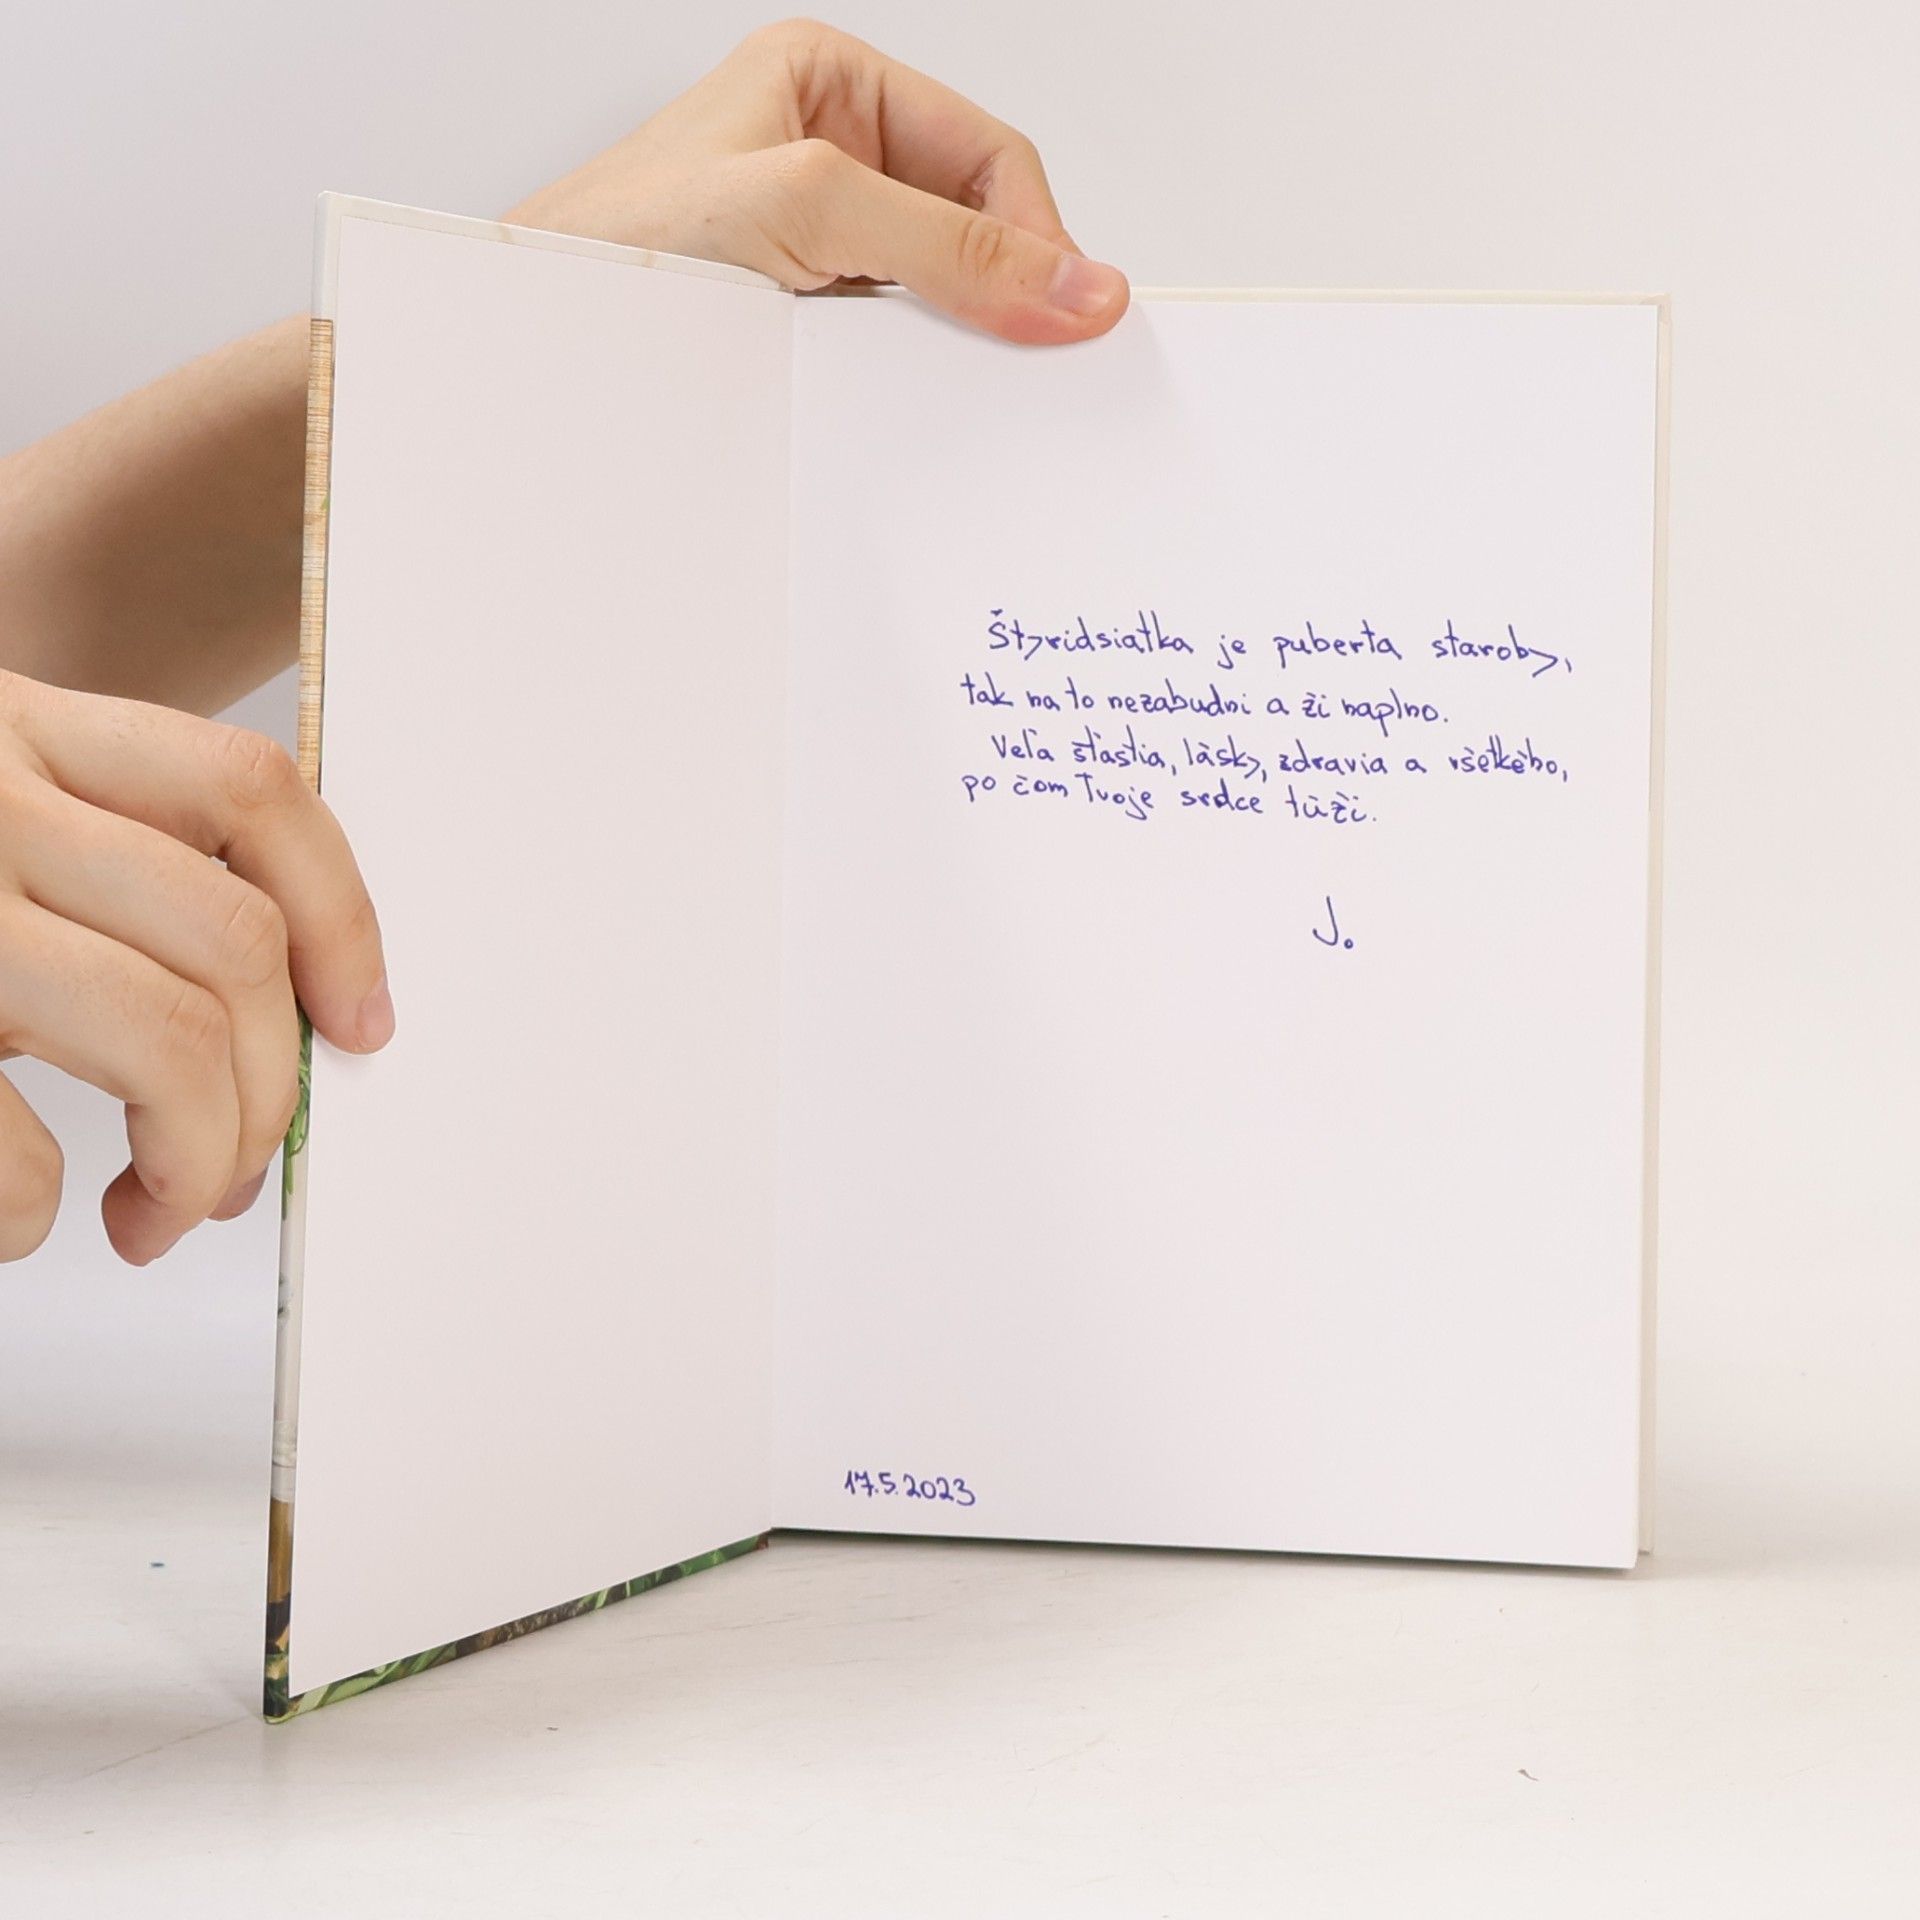 Štyridsiatka je puberta staroby,
tak na to nezabudni a ži naplno.
Veľa šťastia, lásky, zdravia a všetkého,
po čom Tvoje srdce túži.
J.
17.5.2023